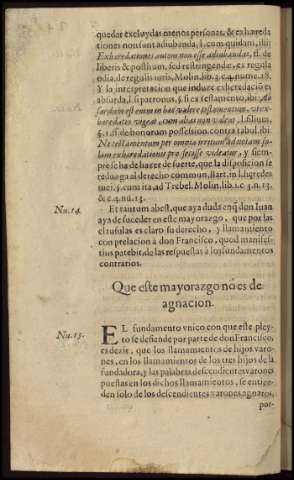 quedar excluydas menos personas, & exhæreda
tiones non sunt adiuvandæ, l. cum quidam, ibi:
Exhæredationes autem non esse adiuuandas, ff. de
liberis & posthum, sed restringendæ, ex regula
odia, de regulis iuris, Molin. lib. 3. c. 4. nume. 18.
Y la interpretacion que induze exheredació es
absurda, l. si patronus, §. si ex testamento, ibi:
est enim in hoc valere testamentum, vt ex-
hæredatus vigeat, cum alias non valeat, l. filium,
§. 1. ff. de bonorum possession. contra tabul. ibi:
Ne testamentum per omnia irritum ad notam so-
lam exhæredationis pro fecisse videatur, y siem-
pre se ha de hazer de suerte, que la disposiciõ se
reduzga al derecho commun, Bart. in l. hæredes
mei, §. cum ita, ad Trebel. Molin. lib. 1. c. 3. n. 13.
& c. 4. nu. 13.
Nu. 14.
Et tantum abest, que aya duda enq̃ don Iuan
aya de suceder en este mayorazgo, que por las
clausulas es claro su derecho, y llamamiento
con prelacion a don Francisco, quod manifes-
tius patebit, de las respuestas à los fundamentos
contrarios.
Que este mayorazgo no es de
agnacion.
Nu. 15.
EL fundamento vnico con que este pley-
to se defiende por parte de don Francisco,
es dezir, que los llamamientos de hijos varo-
nes, en los llamamientos de los tres hijos de la
fundadora, y las palabras descendientes varones
puestas en los dichos llamamiẽtos, se entien-
den solo de los descendientes varones agnatos,
por-